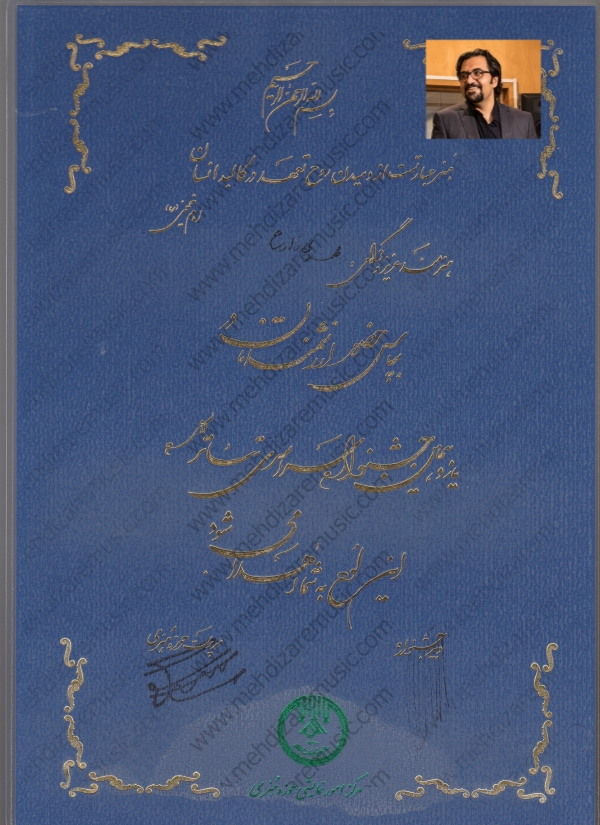 بسم الله الرحمن الرحیم
هنر عبارتست از دمیدن روح تعهد در کالبد انسان
امام خمینی (ره)
هنرمند عزیز و گرامی
بپاس حضور ارزشمندتان در
یازدهمین جشنواره سراسری تئاتر
این لوح به شما اهدا می شود
دبیر جشنواره
سرپرست حوزه هنری
مرکز امور نمایشی حوزه هنری
www.mehdizaremusic.com